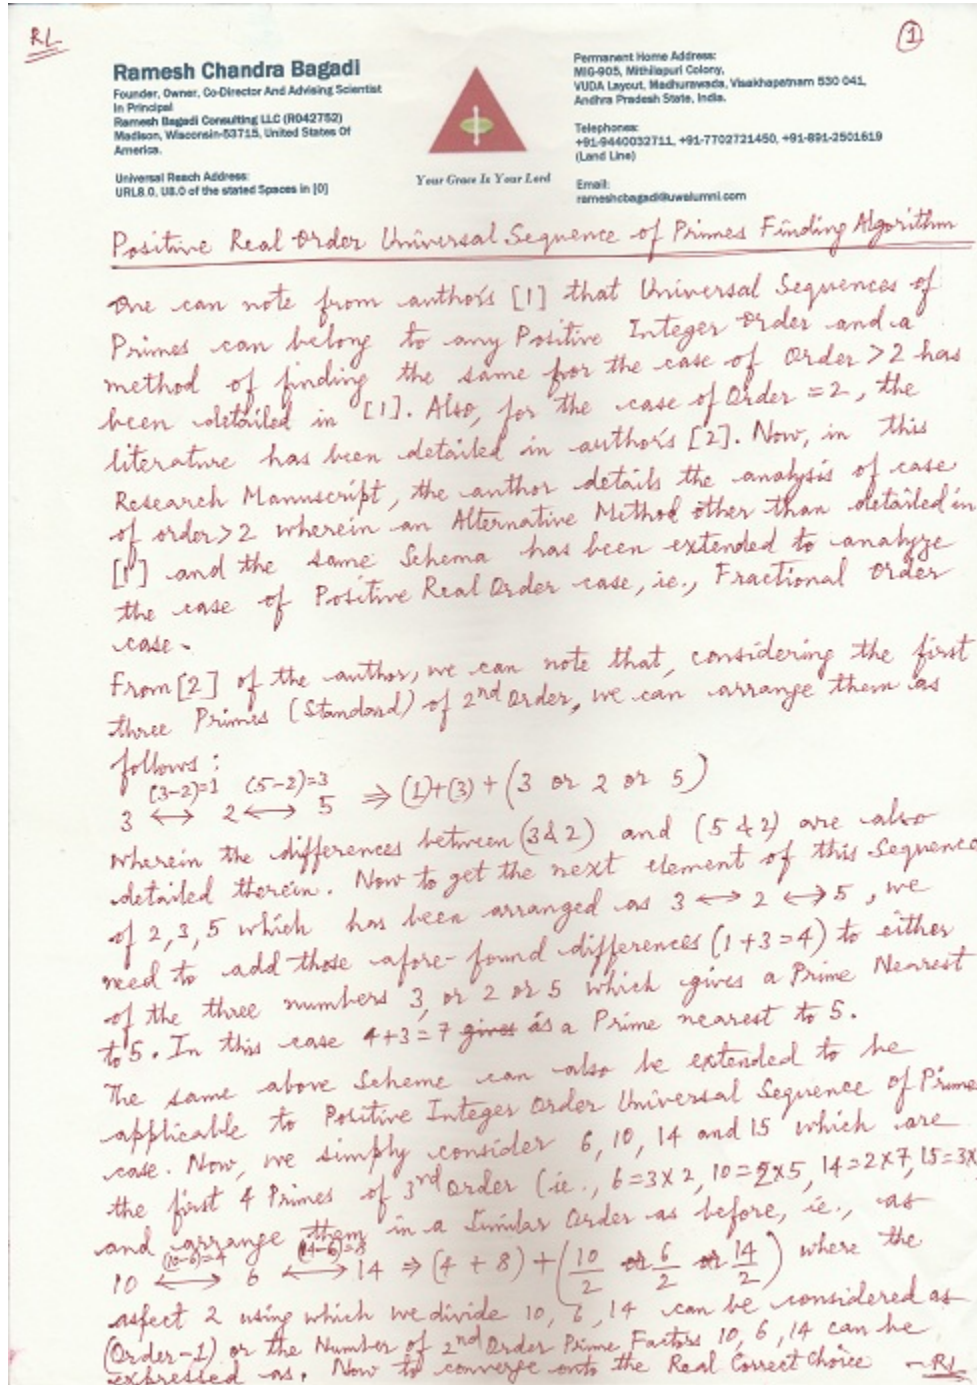 RL
1
Ramesh Chandra Bagadi
Founder, Owner, Co-Director And Advising Scientist
In Principal
Ramesh Bagadi Consulting LLC (R042752)
Madison, Wisconsin-53715, United States Of
America.
Universal Reach Address:
URL8.0, U8.0 of the stated Spaces in [0]
Your Grace Is Your Lord
Permanent Home Address:
MIG-905, Mithilapuri Colony,
VUDA Layout, Madhurawada, Visakhapatnam 530 041,
Andhra Pradesh State, India.
Telephones:
+91-9440032711, +91-7702721450, +91-891-2501619
(Land Line)
Email:
rameshcbagadi@uwalumni.com
Positive Real Order Universal Sequence of Primes Finding Algorithm
One can note from author's [1] that Universal Sequences of
Primes can belong to any Positive Integer Order and a
method of finding the same for the case of Order >2 has
been detailed in [1]. Also, for the case of Order =2, the
literature has been detailed in author's [2]. Now, in this
Research Manuscript, the author details the analysis of case
of order>2 wherein an Alternative Method other than detailed in
[1] and the same Schema has been extended to analyze
the case of Positive Real Order case, ie., Fractional Order
case.
From [2] of the author, we can note that, considering the first
three Primes (Standard) of 2nd Order, we can arrange them as
follows:
(3-2)=1 (5-2)=3
3 ↔ 2 ↔ 5 ⇒ (1)+(3) + (3 or 2 or 5)
wherein the differences between (3&2) and (5&2) are also
detailed therein. Now to get the next element of this Sequence
of 2,3,5 which has been arranged as 3 ↔ 2 ↔ 5, we
need to add those afore-found differences (1+3=4) to either
of the three numbers 3, or 2 or 5 which gives a Prime Nearest
to 5. In this case 4+3=7 gives as a Prime nearest to 5.
The same above Scheme can also be extended to be
applicable to Positive Integer Order Universal Sequence of Prime
case. Now, we simply consider 6, 10, 14 and 15 which are
the first 4 Primes of 3rd Order (ie., 6=3×2, 10=2×5, 14=2×7, 15=3×
and arrange them in a Similar Order as before, ie., as
(10-6)=4 (14-6)=8
10 ↔ 6 ↔ 14 ⇒ (4+8)+(10/2 or 6/2 or 14/2) where the
aspect 2 using which we divide 10, 6, 14 can be considered as
(Order-1) or the Number of 2nd Order Prime Factors 10, 6, 14 can be
expressed as. Now to converge onto the Real Correct Choice -RL